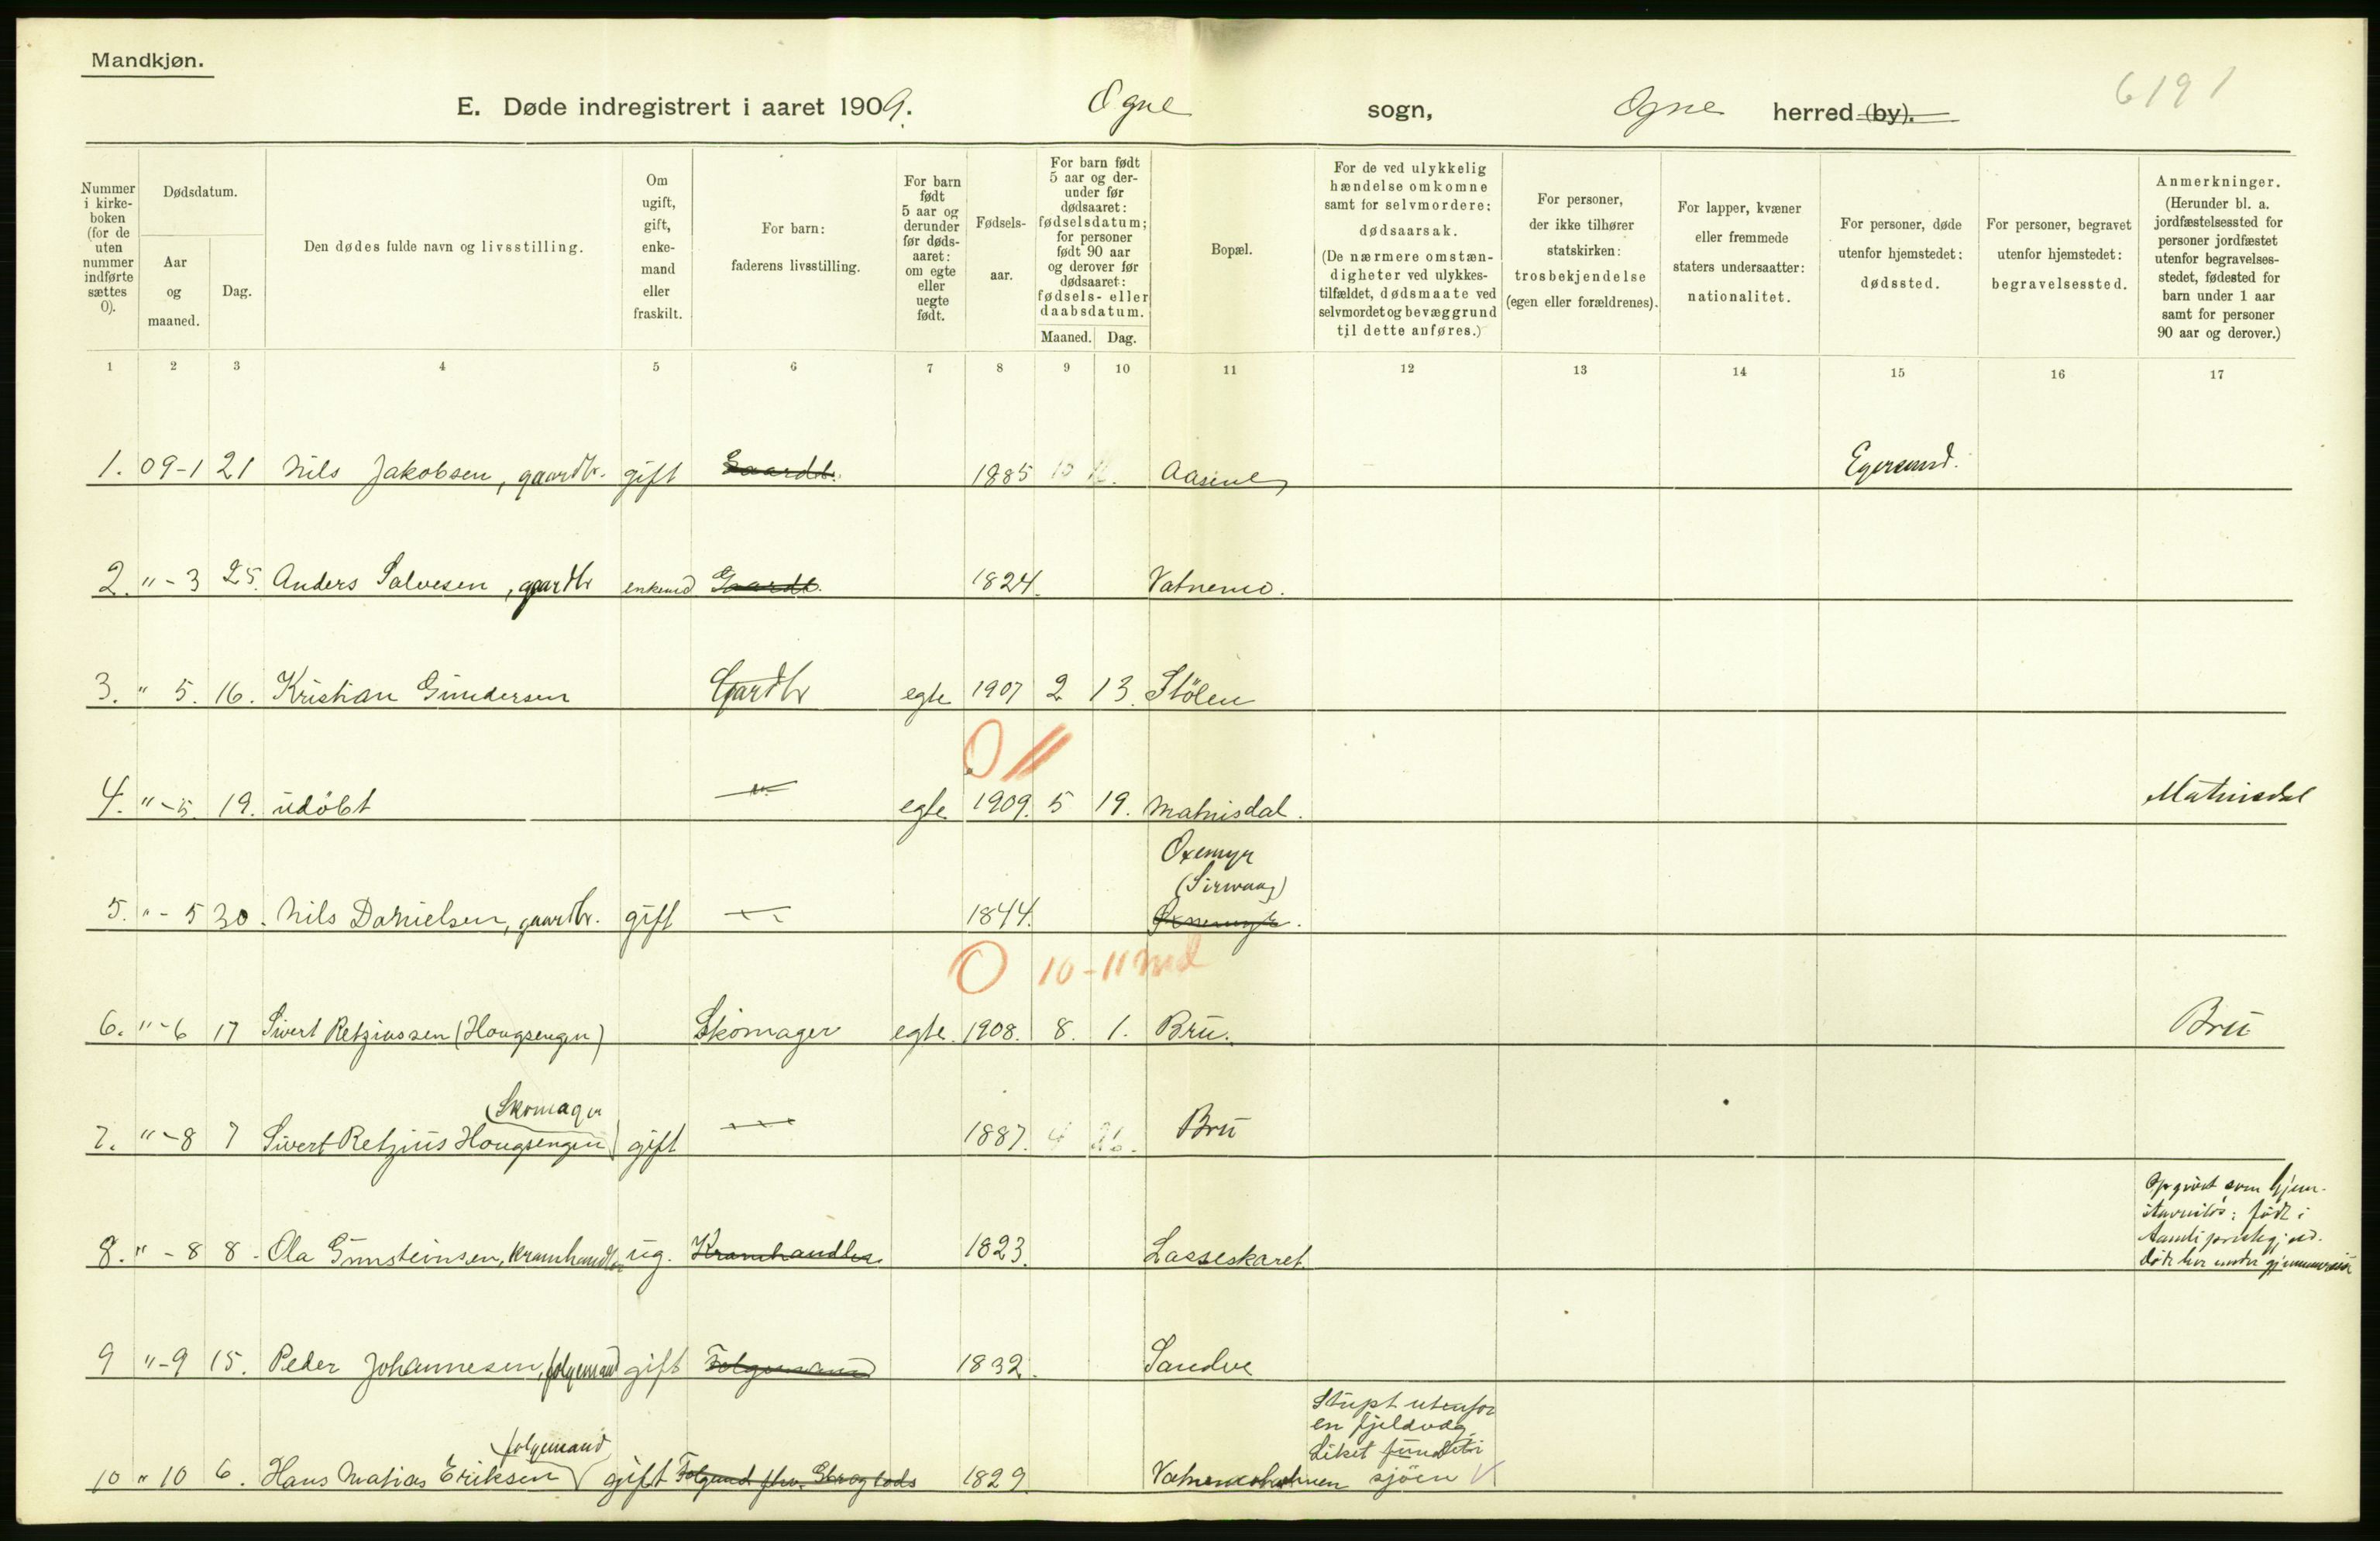 Mandkjøn.
6191
E. Døde indregistrert i aaret 1909. Ogne sogn, Ogne herred (by).
Nummer i kirke-boken (for de uten nummer indførte sættes 0).
Dødsdatum.
Aar og maaned.
Dag.
Den dødes fulde navn og livsstilling.
Om ugift, gift, enke-mand eller fraskilt.
For barn: faderens livsstilling.
For barn født 5 aar og derunder før døds-aaret: om egte eller uegte født.
Fødsels-aar.
For barn født 5 aar og der-under før dødsaaret: fødselsdatum; for personer født 90 aar og derover før dødsaaret: fødsels- eller daabsdatum.
Maaned. Dag.
Bopæl.
For de ved ulykkelig hændelse omkomne samt for selvmordere: dødsaarsak. (De nærmere omstæn-digheter ved ulykkes-tilfældet, dødsmaate ved selvmordet og bevæggrund til dette anføres.)
For personer, der ikke tilhører statskirken: trosbekjendelse (egen eller forældrenes).
For lapper, kvæner eller fremmede staters undersaatter: nationalitet.
For personer, døde utenfor hjemstedet: dødssted.
For personer, begravet utenfor hjemstedet: begravelsessted.
Anmerkninger. (Herunder bl. a. jordfæstelsessted for personer jordfæstet utenfor begravelses-stedet, fødested for barn under 1 aar samt for personer 90 aar og derover.)
1 2 3 4 5 6 7 8 9 10 11 12 13 14 15 16 17
1. 09-1 21 Nils Jakobsen, gaardbr. gift Gaardb. 1885 10 12. Aasene Egersund.
2. " - 3 25. Anders Salvesen, gaardbr enkemd Gaardb. 1824. Vatnemo.
3. " 5. 16. Kristian Gundersen Gardbr egte 1907 2 13. Stölen
0 11
4. " - 5. 19. udöbt - " - egte 1909. 5 19. Matnisdal. Matnisdal
Oxemyr
(Sirevaag)
5. " - 5 30. Nils Danielsen, gaardbr. gift 1844.
0 10-11 md
6. " - 6 17 Sivert Retziussen (Hougsengen) Skomager egte. 1908. 8. 1. Bru. Bru
Skomager
7. " - 8 7 Sivert Retzius Hougsengen gift 1887. 4 Bru
Opgivet som hjem-
stavnslös; född i
8. " - 8 8. Ola Gunsteinsen, kramhandler ug. Kramhandler. 1823. Lasseskaret
död her under gjennemreise
9 " - 9 15. Peder Johannesen, folgemand gift Folgemand 1832. Sandve
Stupt utenfor
en fjeldvæg
folgemand Liket fundet i
10 " 10 6. Hans Matias Eriksen gift 1829. Vatnemoholmen sjöen V